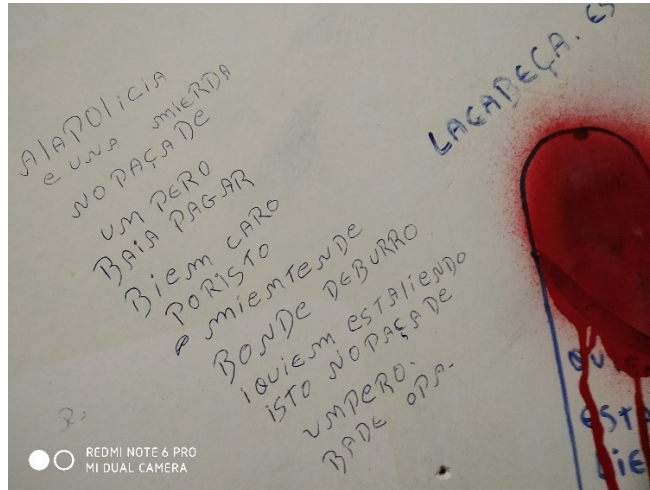 LACABEÇA. ES
AlAPOliCiA
e UNA MIERDA
NO PAÇA DE
UM PERO
BAIA PAGAR
BIEM CARO
PORISTO
e MIEMTENDE
BONDE DEBURRO
iQUIEM ESTALIENDO
ISTO NOPAÇADE
UMPERO.
BADE OPA-
QUI
ESTA
LIE
REDMI NOTE 6 PRO
MI DUAL CAMERA